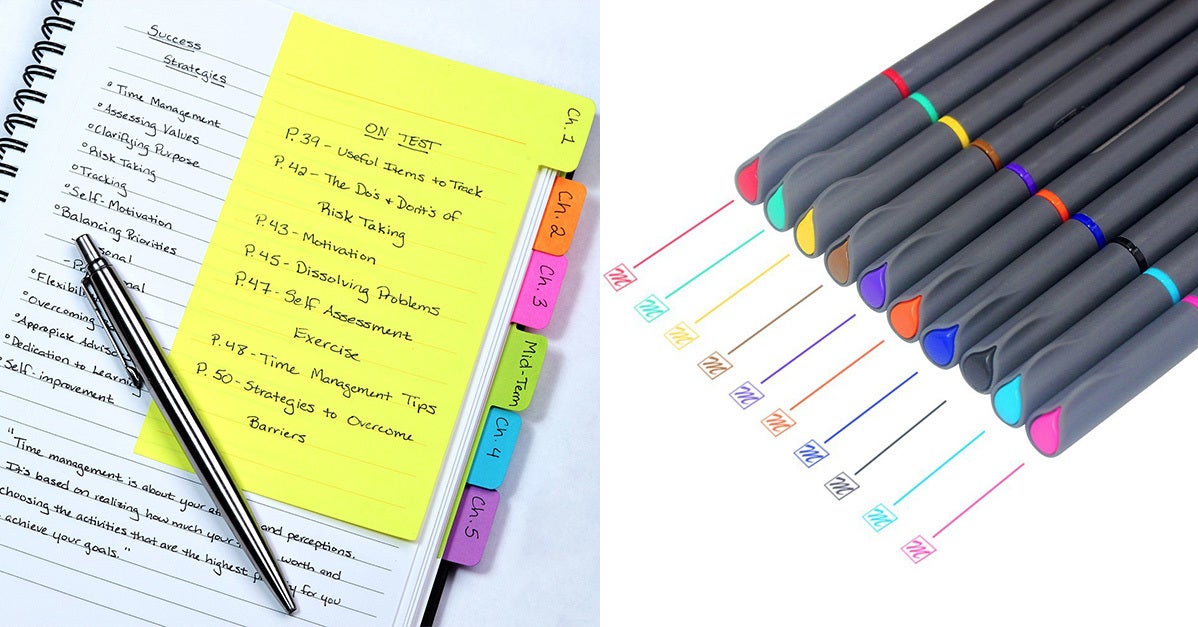 Success
Strategies
° Time Management
° Assessing Values
° Clarifying Purpose
° Risk Taking
° Tracking
° Self-Motivation
° Balancing Priorities
° Flexibili
° Overcoming
° Appropiate Advisor
° Dedication to Learning
° Self-improvement
"Time management is about your and perceptions.
It's based on realizing how much your worth and
choosing the activities that are the highest for you
achieve your goals."
ON TEST
P.39 - Useful Items to Track
P.42 - The Do's & Dont's of
Risk Taking
P.43 - Motivation
P.45 - Dissolving Problems
P.47 - Self Assessment
Exercise
P.48 - Time Management Tips
P.50 - Strategies to Overcome
Barriers
Ch. 1
Ch. 2
Ch. 3
Mid-Team
Ch. 4
Ch. 5